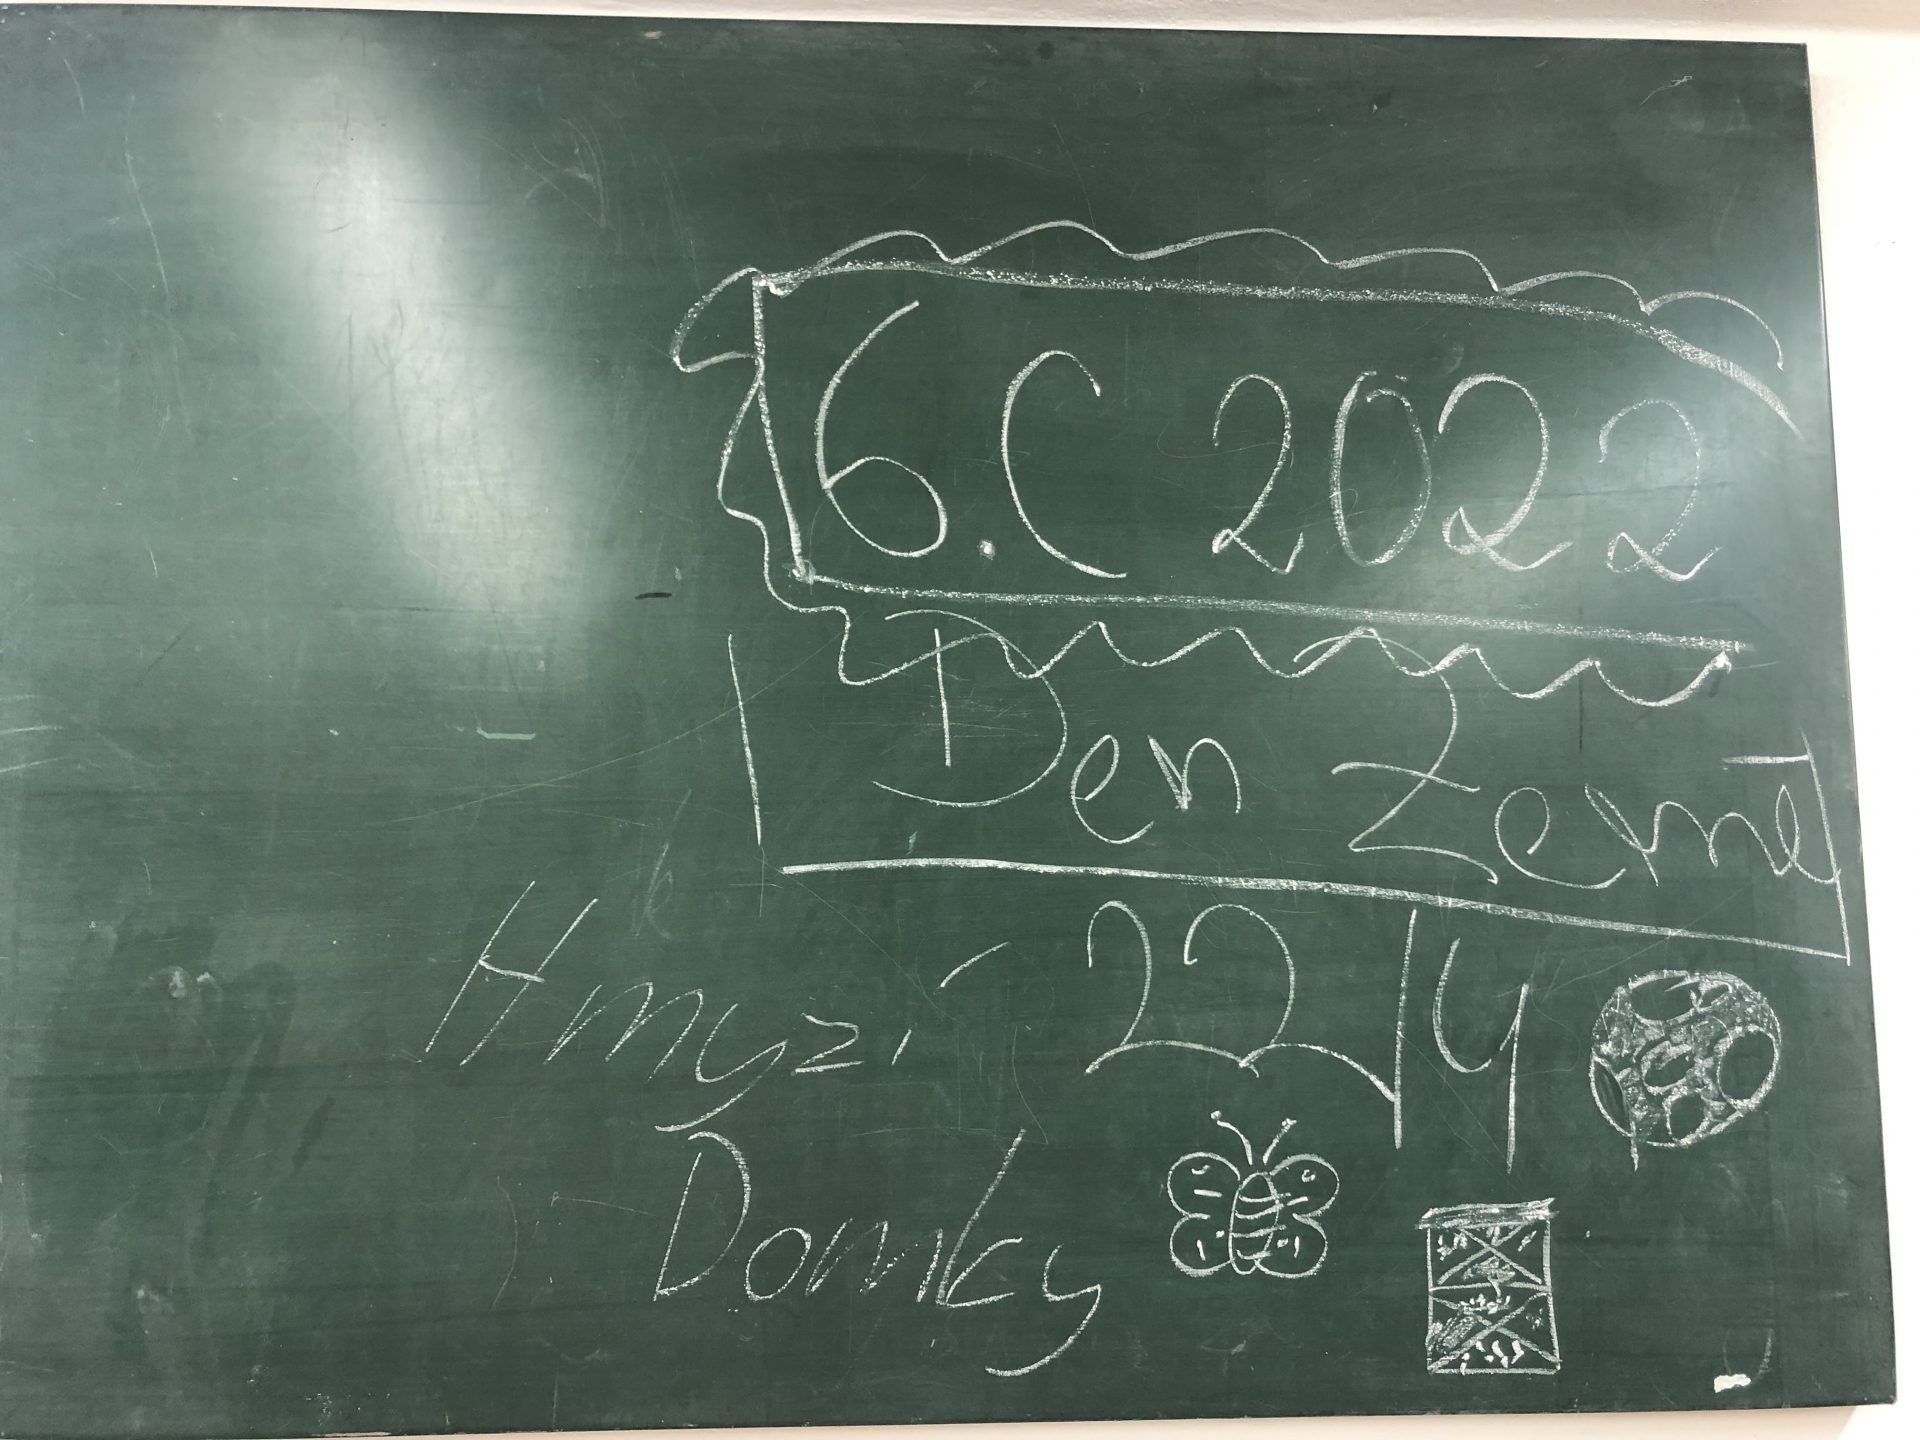 6.C 2022
Den Země
Hmyzí 22/4
Domky